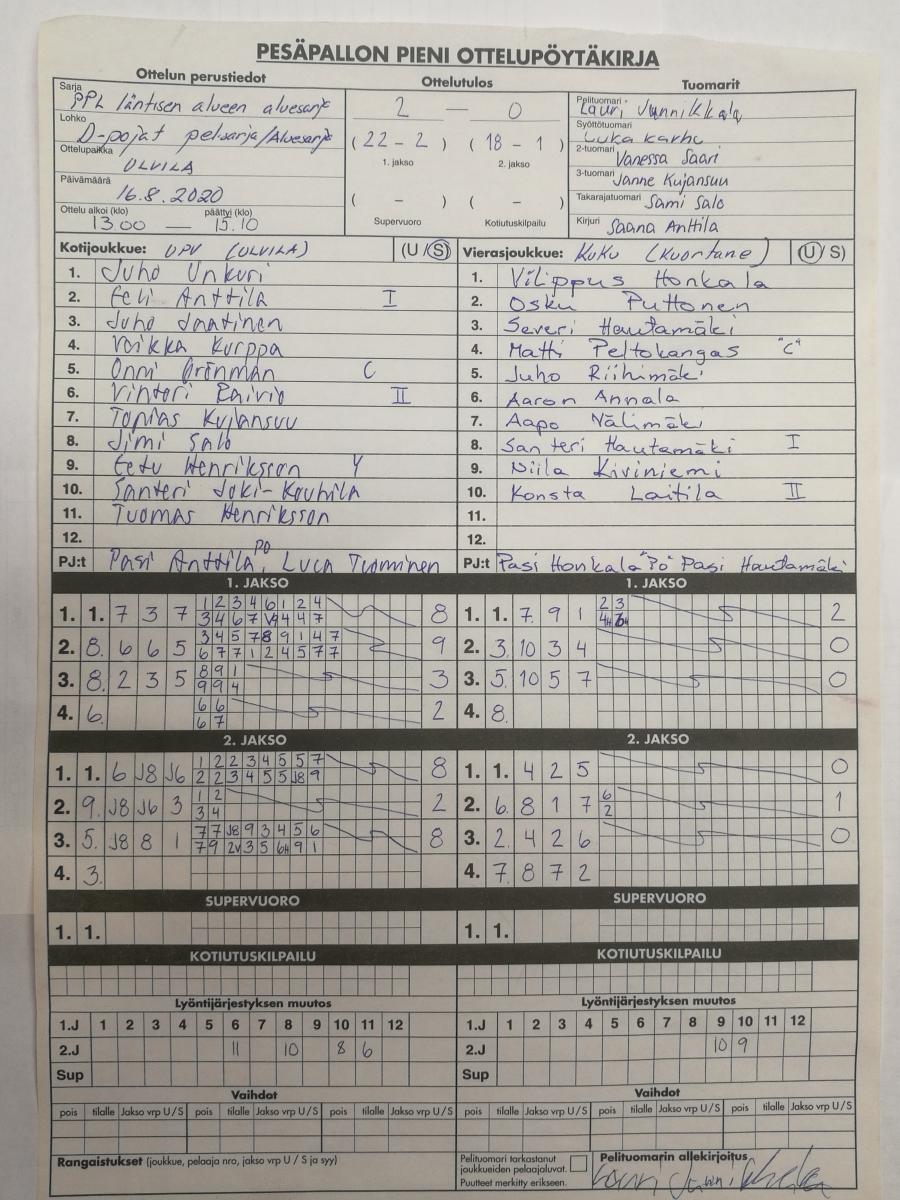 PESÄPALLON PIENI OTTELUPÖYTÄKIRJA
Ottelun perustiedot
Ottelutulos
Tuomarit
Sarja
PPL läntisen alueen aluesarja
Lohko
D-pojat pelsarja/Aluesarja
Ottelupaikka
ULVILA
Päivämäärä
16.8.2020
Ottelu alkoi (klo) päättyi (klo)
13.00 — 15.10
2 — 0
(22 - 2) (18 - 1)
1. jakso 2. jakso
( - ) ( - )
Supervuoro Kotiutuskilpailu
Pelituomari
Lauri
Syöttötuomari
Luka Karhu
2-tuomari Vanessa Saari
3-tuomari Janne Kujansuu
Takarajatuomari Sami Salo
Kirjuri Saana Anttila
Kotijoukkue: UPV (ULVILA) (U/S)
1. Juho Unkuri
2. Eeli Anttila I
3. Juho Jaatinen
4. Voikka Kurppa
5. Onni Grönman C
6. Vintori Raivio II
7. Topias Kujansuu
8. Jimi Salo
9. Eetu Henriksson Y
10. Santeri Joki-Kouhila
11. Tuomas Henriksson
12.
PJ:t Pasi Anttila PO, Luca Tuominen
Vierasjoukkue: KuKu (Kuortane) (U/S)
1. Vilippus Honkala
2. Osku Puttonen
3. Severi Hautamäki
4. Matti Peltokangas "C"
5. Juho Riihimäki
6. Aaron Annala
7. Aapo Nälimäki
8. Santeri Hautamäki I
9. Niila Kiviniemi
10. Konsta Laitila II
11.
12.
PJ:t Pasi Honkala "Pö" Pasi Hautamäki
1. JAKSO
1. 1. 7 3 7 1 2 3 4 6 1 2 4 8
3 4 6 7 4 4 7
2. 8. 6 6 5 3 4 5 7 8 9 1 4 7 9
6 7 7 1 2 4 5 7 7
3. 8. 2 3 5 8 9 1 3
9 9 4
4. 6. 6 6 2
6 7
1. JAKSO
1. 1. 7 9 1 2 3 2
2. 3. 10 3 4 0
3. 5. 10 5 7 0
4. 8.
2. JAKSO
1. 1. 6 J8 J6 1 2 2 3 4 5 5 7 8
2 2 3 4 5 5 J8 9
2. 9. J8 J6 3 1 2 2
3 4
3. 5. J8 8 1 7 7 J8 9 3 4 5 6 8
7 9 2V 3 5 6H 9 1
4. 3.
2. JAKSO
1. 1. 4 2 5 0
2. 6. 8 1 7 6 1
2
3. 2. 4 2 6 0
4. 7. 8 7 2
SUPERVUORO
1. 1.
SUPERVUORO
1. 1.
KOTIUTUSKILPAILU
KOTIUTUSKILPAILU
Lyöntijärjestyksen muutos
1.J 1 2 3 4 5 6 7 8 9 10 11 12
2.J 11 10 8 6
Sup
Lyöntijärjestyksen muutos
1.J 1 2 3 4 5 6 7 8 9 10 11 12
2.J 10 9
Sup
Vaihdot
pois tilalle Jakso vrp U/S pois tilalle Jakso vrp U/S pois tilalle Jakso vrp U/S
Vaihdot
pois tilalle Jakso vrp U/S pois tilalle Jakso vrp U/S pois tilalle Jakso vrp U/S
Rangaistukset (joukkue, pelaaja nro, jakso vrp U/S ja syy)
Pelituomari tarkastanut
joukkueiden pelaajaluvat.
Puutteet merkitty erikseen.
Pelituomarin allekirjoitus